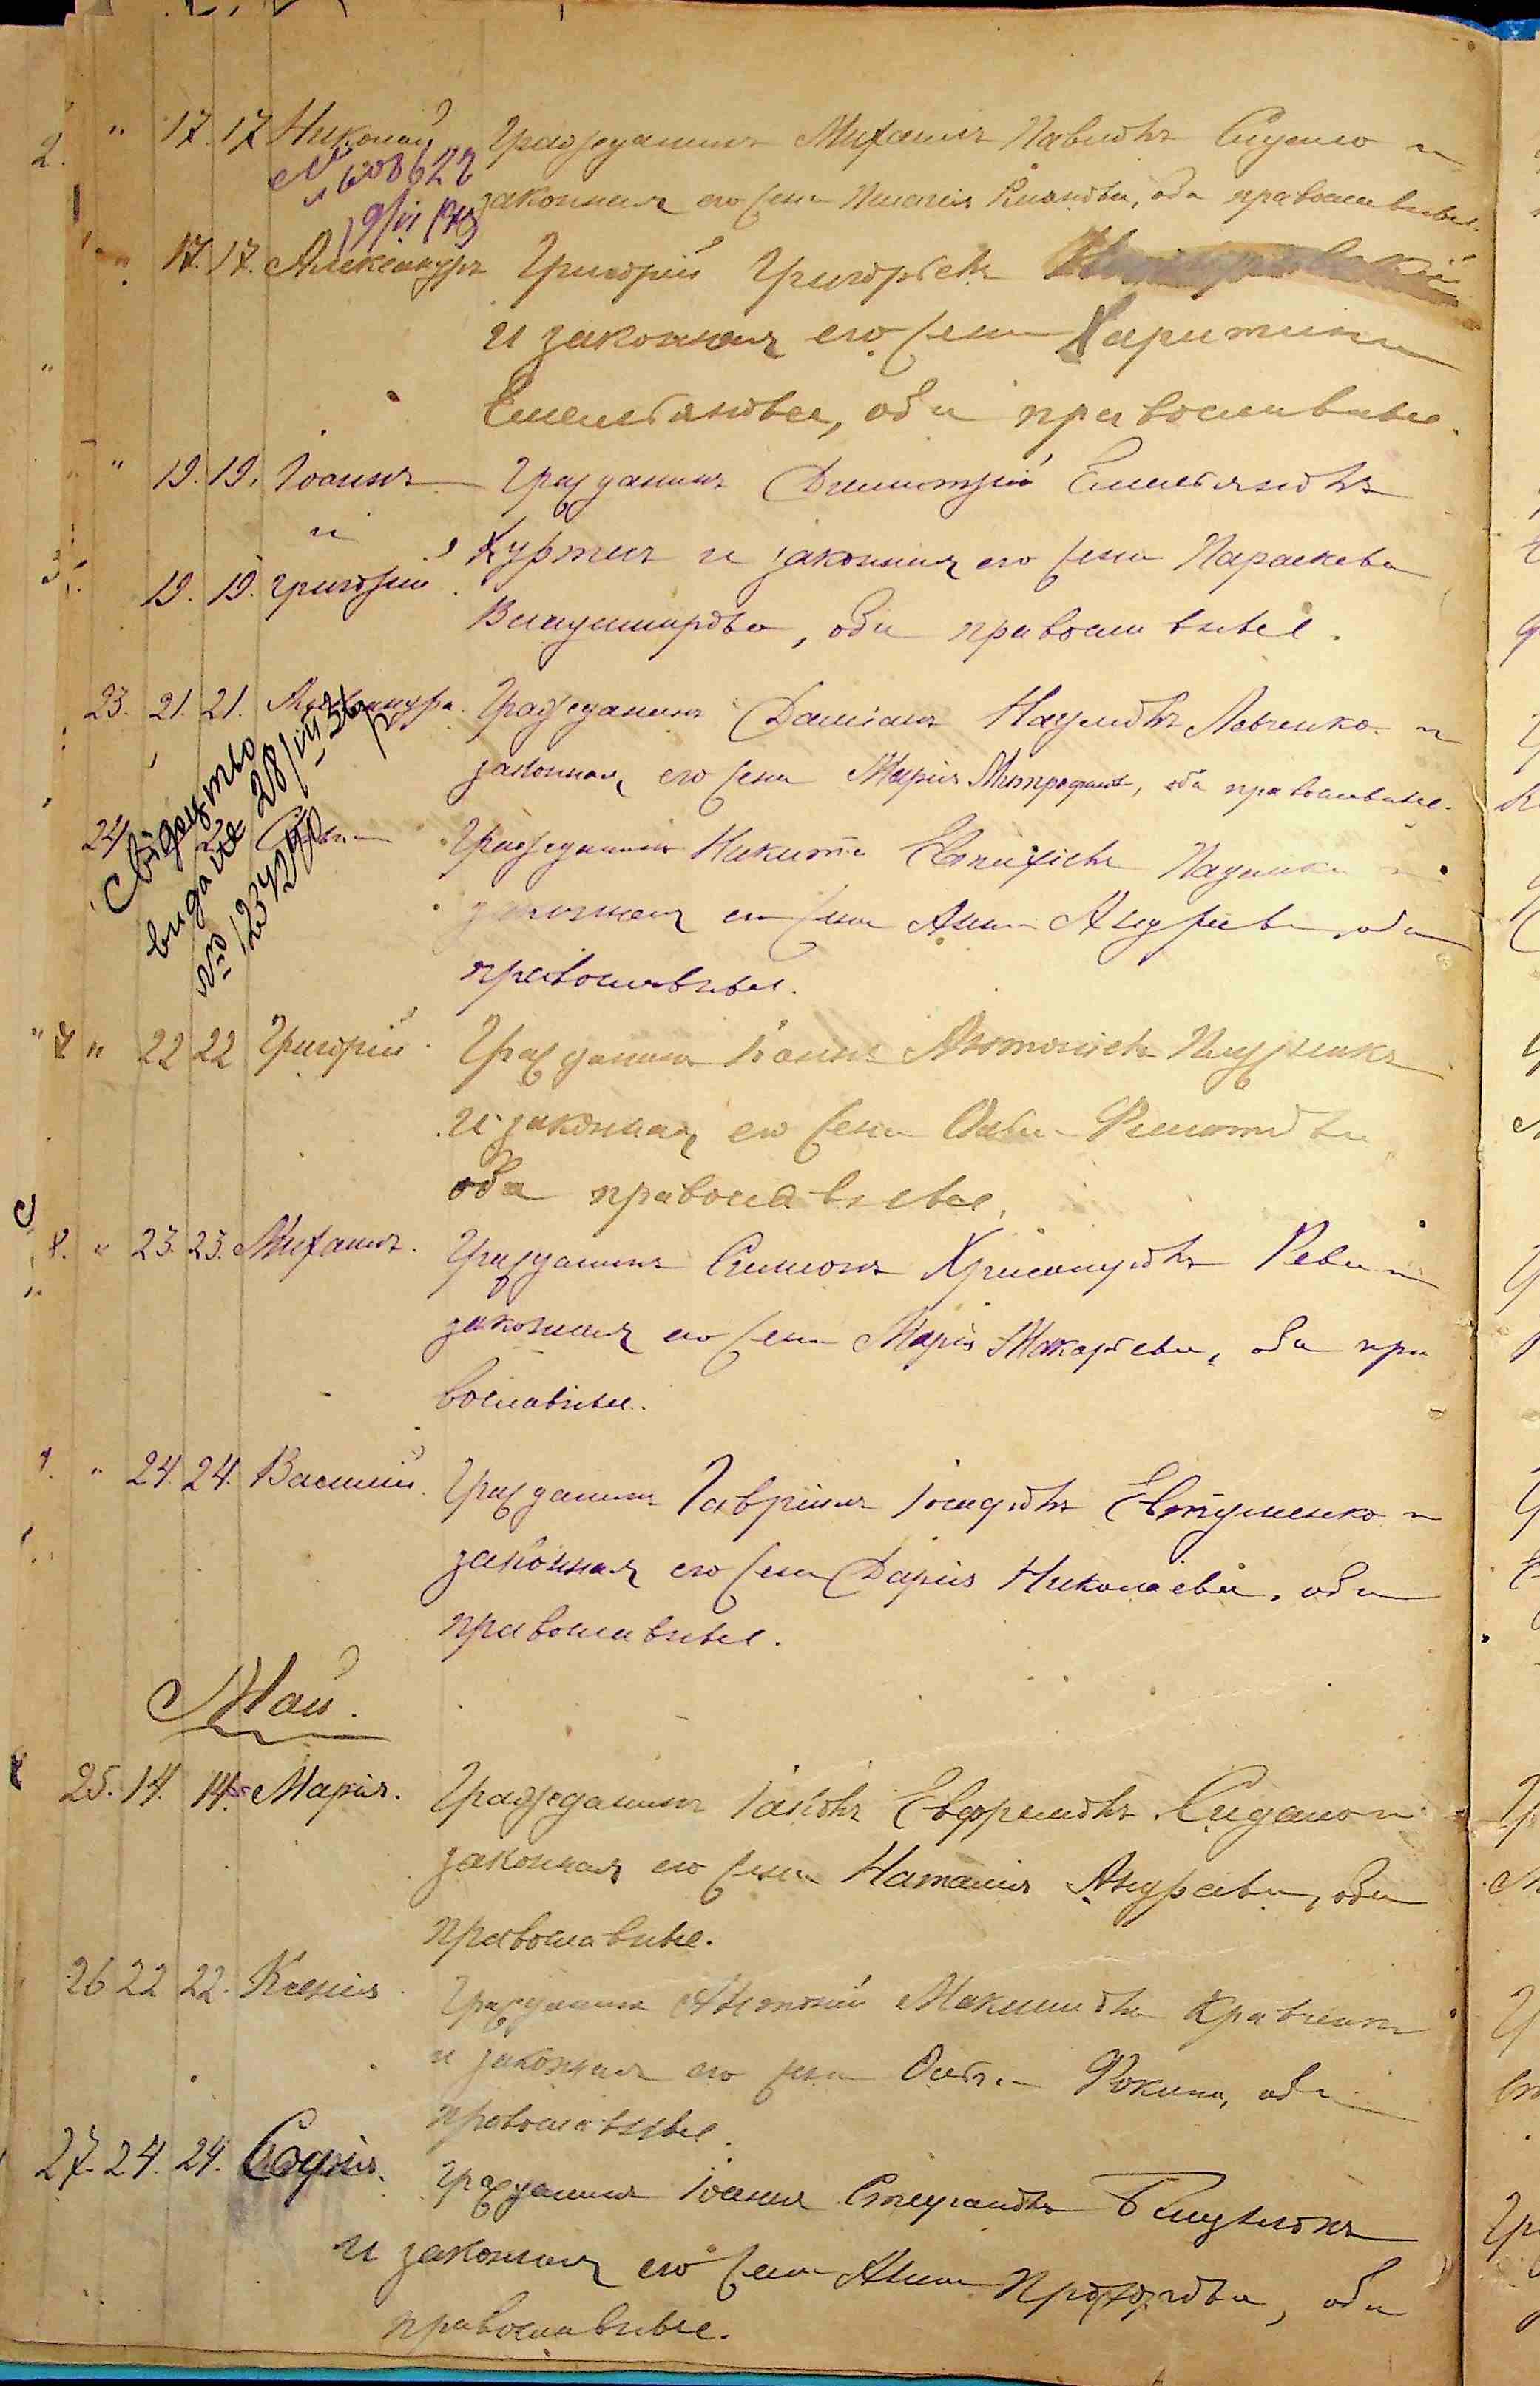 2. " 17. 17 Николай Гражданинъ Михаилъ Павловъ и
№ 608622 законная его жена Пелагія, оба православные.
" 17. 17. Александръ Григорій Григорьевъ
и законная его жена Харитина
Емельянова, оба православные.
" 19. 19. Іоаннъ Гражданинъ Димитрій Емельяновъ
и Куртенъ и законная его жена Параскева
19. 19. Григорій Владимирова, оба православные.
23. 21. 21. Александра. Гражданинъ Даміанъ Наумовъ Левченко и
законная его жена Марія Митрофан., оба православные.
Свідоцтво
видаite 28/VII 56 р
№ 1234290
24 Гражданинъ Никита Евтихіевъ и
законная его жена Анна Андреева, оба
православные.
" 22 22 Григорій. Гражданинъ Іоаннъ Антоніевъ
и законная его жена Ольга Филиппова
оба православные.
8. " 23. 23. Михаилъ. Гражданинъ Симеонъ Хрисанфовъ Рева и
законная его жена Марія Макарьева, оба пра
вославные.
" 24. 24. Василій. Гражданинъ Гавріилъ Іосифовъ Евтушенко и
законная его жена Дарія Николаева, оба
православные.
Май.
25. 14. 14. Марія. Гражданинъ Іаковъ Евфремовъ и
законная его жена Наталія Андреева, оба
православные.
26 22 22. Ксенія Гражданинъ Антоній Максимовъ Кравченко
и законная его жена Ольга Фокина, оба
православные.
27. 24. 24. Софія. Гражданинъ Іоаннъ Стефановъ
и законная его жена Анна Прохорова, оба
православные.